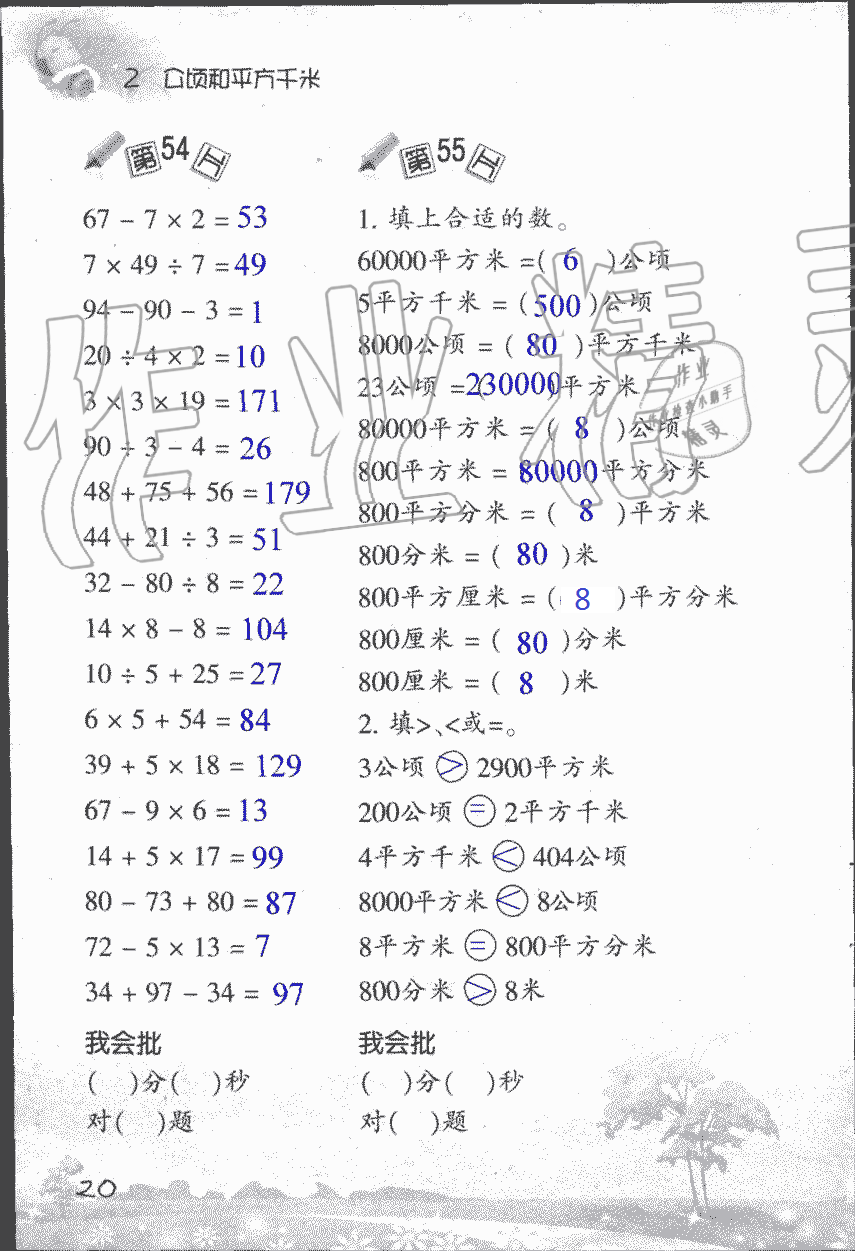 2 公顷和平方千米
第54工
67 − 7 × 2 = 53
7 × 49 ÷ 7 = 49
94 − 90 − 3 = 1
20 ÷ 4 × 2 = 10
3 × 3 × 19 = 171
90 ÷ 3 − 4 = 26
48 + 75 + 56 = 179
44 + 21 ÷ 3 = 51
32 − 80 ÷ 8 = 22
14 × 8 − 8 = 104
10 ÷ 5 + 25 = 27
6 × 5 + 54 = 84
39 + 5 × 18 = 129
67 − 9 × 6 = 13
14 + 5 × 17 = 99
80 − 73 + 80 = 87
72 − 5 × 13 = 7
34 + 97 − 34 = 97
我会批
( )分( )秒
对( )题
第55工
1. 填上合适的数。
60000平方米 =( 6 )公顷
5平方千米 = ( 500 )公顷
8000公顷 = ( 80 )平方千米
23公顷 = 230000平方米
80000平方米 = ( 8 )公顷
800平方米 = 80000平方分米
800平方分米 = ( 8 )平方米
800分米 = ( 80 )米
800平方厘米 = ( 8 )平方分米
800厘米 = ( 80 )分米
800厘米 = ( 8 )米
2. 填>、<或=。
3公顷 > 2900平方米
200公顷 = 2平方千米
4平方千米 < 404公顷
8000平方米 < 8公顷
8平方米 = 800平方分米
800分米 > 8米
我会批
( )分( )秒
对( )题
20
作业精灵
作业
精灵